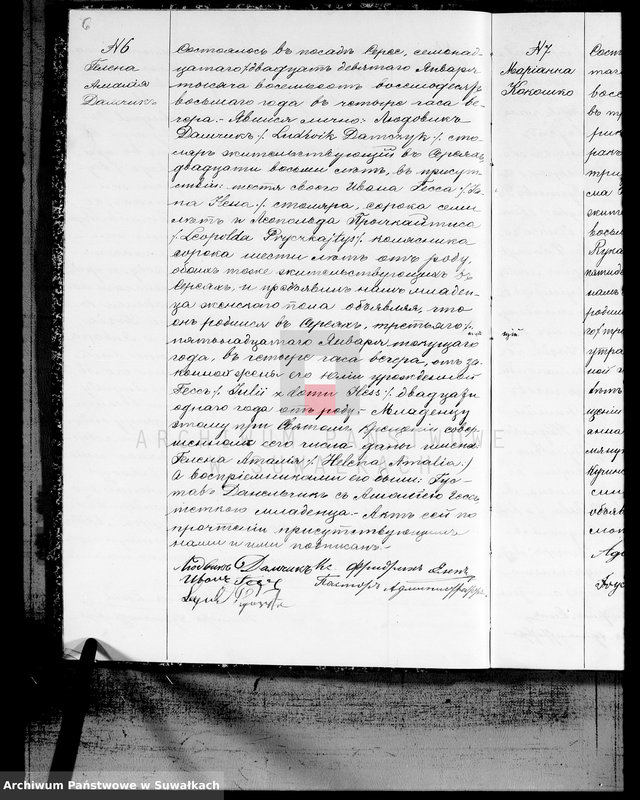 6
N6
Гелена
Амалія
Дамчикъ
Состоялось въ посадѣ Сереѣ, семнад-
цатаго/двадцать девятаго Января
тысяча восемьсотъ восемдесятъ
восьмаго года въ четыре часа ве-
чера. Явился лично: Людовикъ
Дамчикъ /: Ludwik Damczyk :/ сто-
ляръ жительствующій въ Сереяхъ
двадцати восьми лѣтъ, въ присут-
ствіи: тестя своего Ивана Гесса /: Ja-
na Hessa :/ столяра, сорока семи
лѣтъ и Леопольда Прычкайтиса
/: Leopolda Pryczkajtys :/ колясника
сорока шести лѣтъ отъ роду,
обоихъ тоже жительствующихъ въ
Сереяхъ, и предъявилъ намъ младен-
ца женскаго пола объявляя, что
онъ родился въ Сереяхъ, третьяго/
пятнадцатаго Января текущаго
года, въ четыре часа вечера, отъ за-
конной жены его Юліи урожденной
Гессъ /: Julii z domu Hess :/ двадцати
одного года отъ роду. Младенцу
этому при Святомъ Крещеніи совер-
шенномъ сего числа даны имена:
Гелена Амалія /: Helena Amalia :/
а воспріемниками его были: Гус-
тавъ Данельчикъ съ Амаліею Гессъ
теткою младенца. Актъ сей по
прочтеніи присутствующимъ
нами и ими подписанъ.
Людвикъ Дамчикъ Кс. Фридрихъ
Иванъ Гессъ Пасторъ Администраторъ
N7
Маріанна
Кокошко
ARCHIWUM PAŃSTWOWE
W SUWAŁKACH
Archiwum Państwowe w Suwałkach